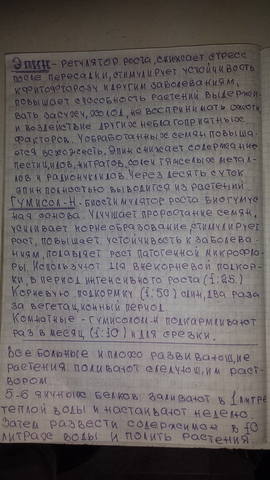 Эпин - регулятор роста, снижает стресс
после пересадки, стимулирует устойчивость
к фитофторозу и другим заболеваниям,
повышает способность растений выдержи-
вать засуху, холод, не воспринимать ожоги
и воздействие других неблагоприятных
факторов. У обработанных семян повыша-
ется всхожесть. Эпин снижает содержание
пестицидов, нитратов, солей тяжелых метал-
лов и радионуклидов. Через десять суток
эпин полностью выводится из растений.
Гумисол-Н - биостимулятор роста биогумус-
ная основа. Улучшает проростание семян,
усиливает корнеобразование, стимулирует
рост, повышает устойчивость к заболева-
ниям, подавляет рост патогенной микрофло-
ры. Используют для внекорневой подкорм-
ки, в период интенсивного роста (1:25)
Корневую подкормку (1:50) один, два раза
за вегетационный период.
Комнатные - гумисолом-Н подкармливают
раз в месяц (1:30) и для срезки.
Все больные и плохо развивающие
растения поливают следующим раст-
вором.
5-6 яичных белков заливают в 1 литре
теплой воды и настаивают неделю.
Затем развести содержимое в 10
литрах воды и полить растения